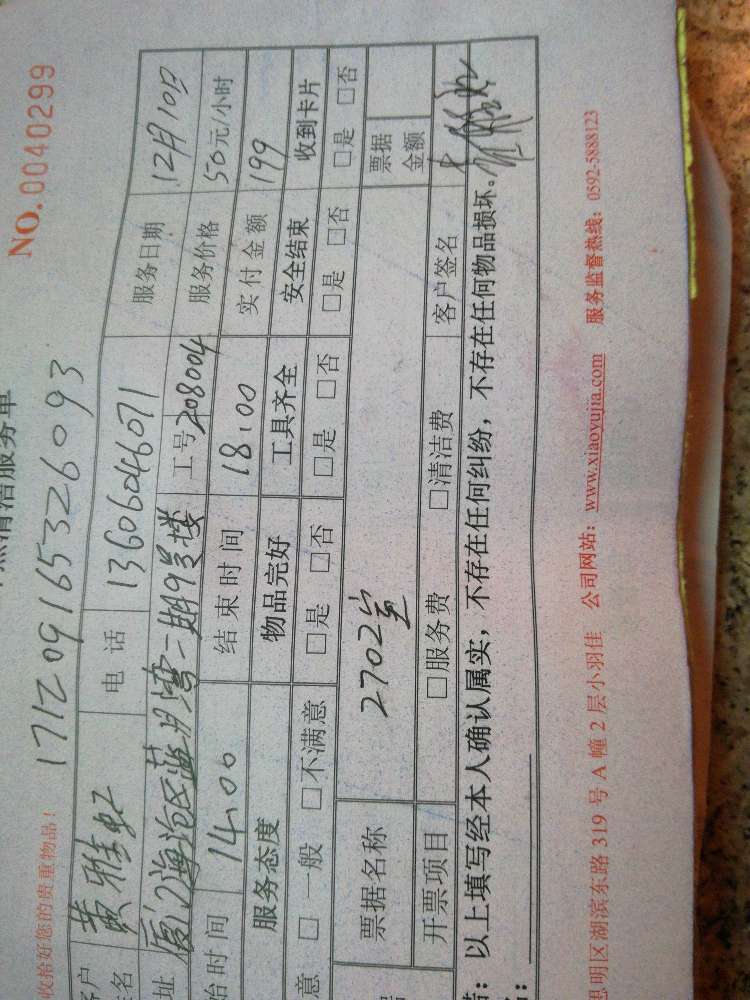 清洁服务单
NO.0040299
收拾好您的贵重物品！
17120916532 6093
客户姓名 黄雅虹 电话 13606046071 服务日期 12月10日
址 厦门海沧区蓝月湾二期9号楼 工号 208004 服务价格 50元/小时
始时间 14:00 结束时间 18:00 实付金额 199
服务态度 物品完好 工具齐全 安全结束 收到卡片
意 □一般 □不满意 □是 □否 □是 □否 □是 □否 □是 □否
票据名称 2702室 票据金额
开票项目 □服务费 □清洁费 客户签名
以上填写经本人确认属实，不存在任何纠纷，不存在任何物品损坏。
思明区湖滨东路 319 号 A 幢 2 层小羽佳 公司网站：www.xiaoyujia.com 服务监督热线：0592-5888123